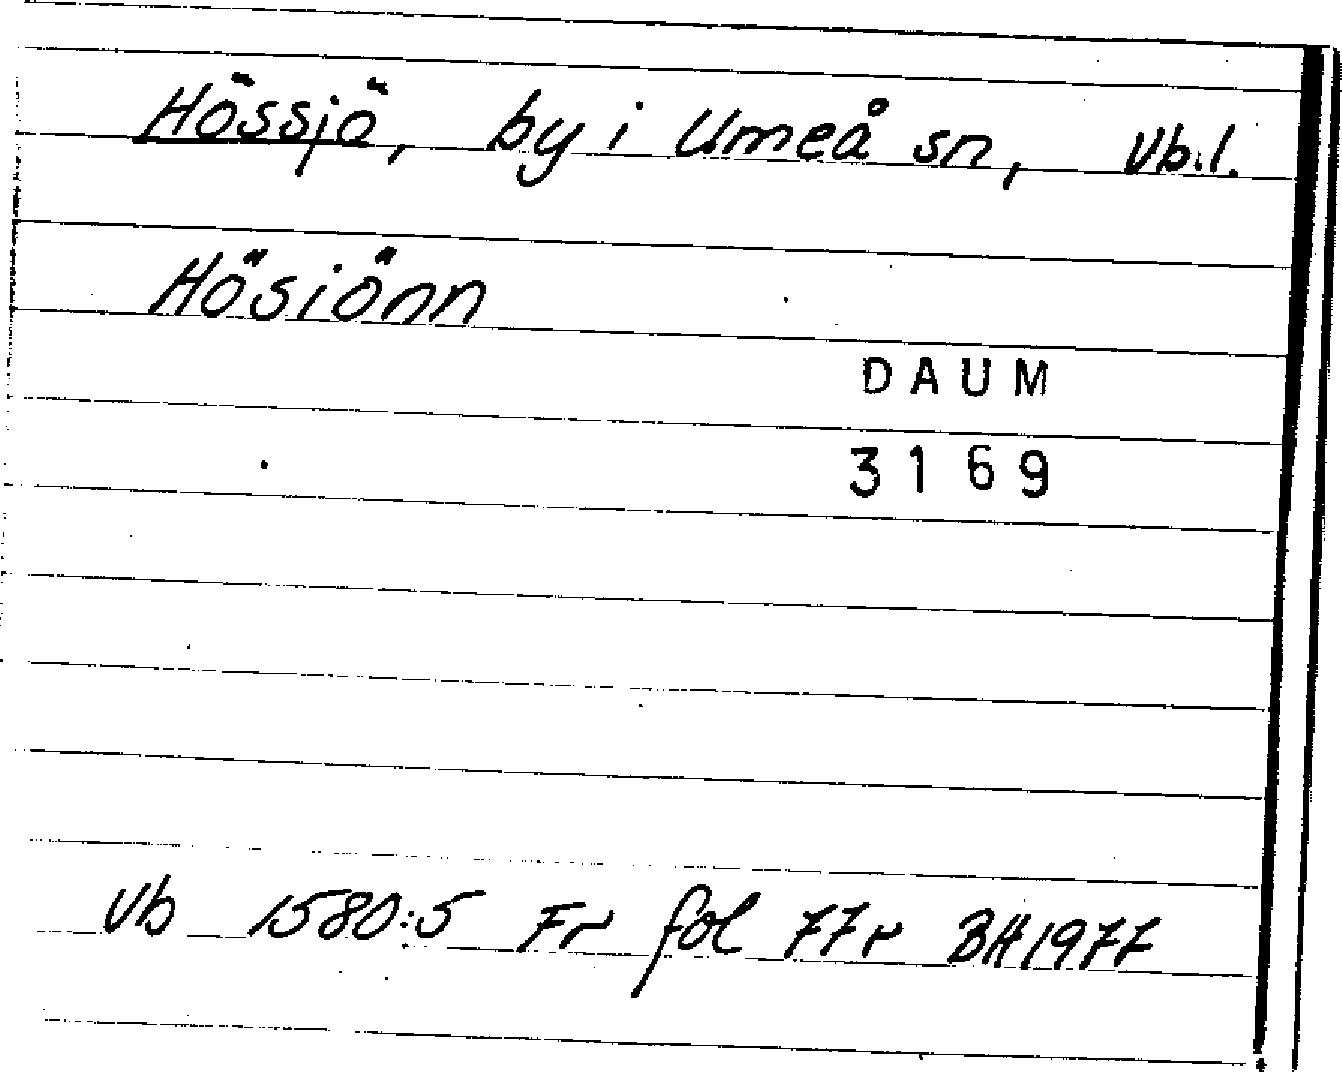 Hössjö, by i Umeå sn, Vb.l.
Hösiönn
DAUM
3169
Vb 1580:5 Fr fol 77r BH1977